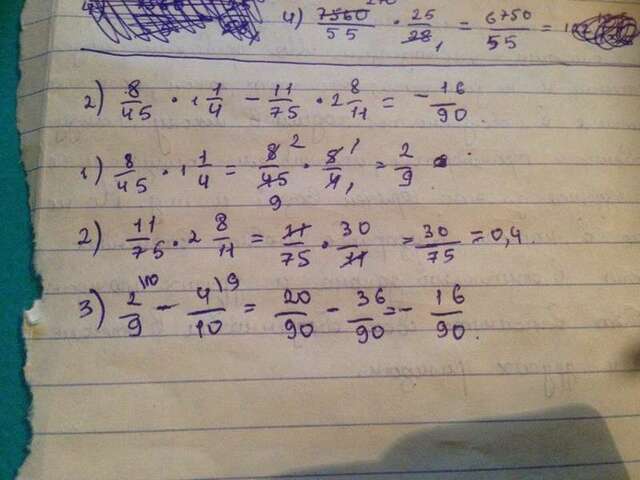 4) 7560/55 · 25/28 1 = 6750/55 =
2) 8/45 · 1 1/4 - 11/75 · 2 8/11 = - 16/90
1) 8/45 · 1 1/4 = 8 2/45 9 · 8 1/4 1 = 2/9
2) 11/75 · 2 8/11 = 11/75 · 30/11 = 30/75 = 0,4.
3) 2\10/9 - 4\9/10 = 20/90 - 36/90 = - 16/90.